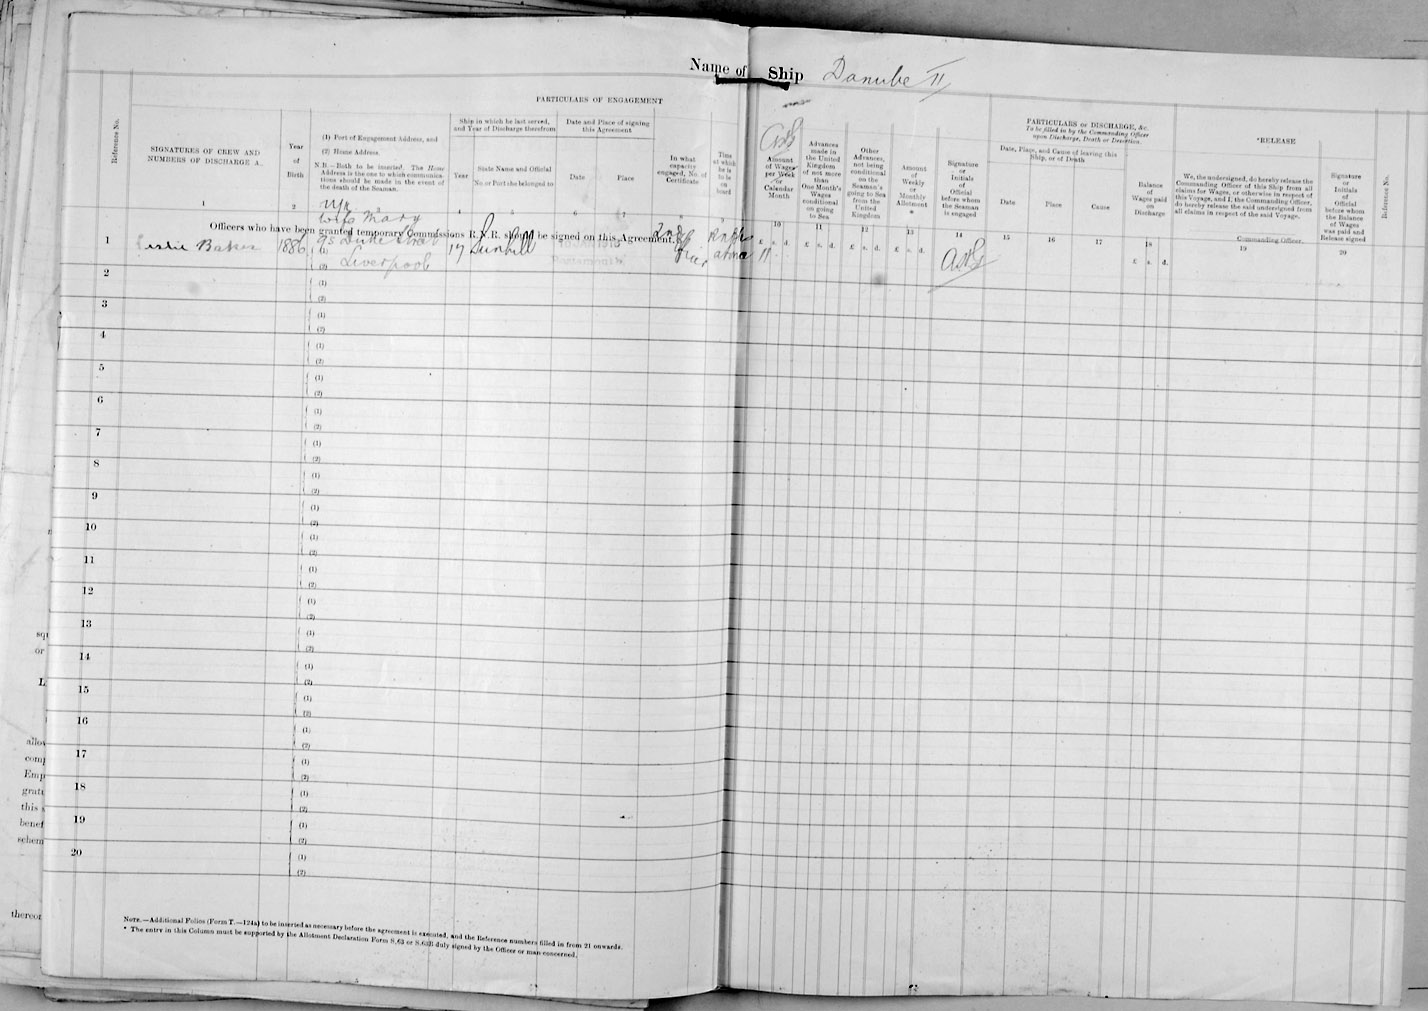 Name of Ship Danube II
PARTICULARS OF ENGAGEMENT
Reference No.
SIGNATURES OF CREW AND
NUMBERS OF DISCHARGE A.
1
Year
of
Birth
2
(1) Port of Engagement Address, and
(2) Home Address.
N.B.—Both to be inserted. The Home
Address is the one to which communica-
tions should be made in the event of
the death of the Seaman.
3
Ship in which he last served,
and Year of Discharge therefrom
Year
4
State Name and Official
No. or Port she belonged to
5
Date and Place of signing
this Agreement
Date
6
Place
7
In what
capacity
engaged, No. of
Certificate
8
Time
at which
he is
to be
on
board
9
Amount
of Wages
per Week
or
Calendar
Month
10
Advances
made in
the United
Kingdom
of not more
than
One Month's
Wages
conditional
on going
to Sea
11
Other
Advances,
not being
conditional
on the
Seaman's
going to Sea
from the
United
Kingdom
12
Amount
of
Weekly
or
Monthly
Allotment
*
13
Signature
or
Initials
of
Official
before whom
the Seaman
is engaged
14
PARTICULARS OF DISCHARGE, &c.
To be filled in by the Commanding Officer
upon Discharge, Death or Desertion.
Date, Place, and Cause of leaving this
Ship, or of Death
Date
15
Place
16
Cause
17
Balance
of
Wages paid
on
Discharge
18
*RELEASE
We, the undersigned, do hereby release the
Commanding Officer of this Ship from all
claims for Wages, or otherwise in respect of
this Voyage, and I, the Commanding Officer,
do hereby release the said undersigned from
all claims in respect of the said Voyage.
Commanding Officer.
19
Signature
or
Initials
of
Official
before whom
the Balance
of Wages
was paid and
Release signed
20
Reference No.
Officers who have been granted temporary Commissions R.N.R. should be signed on this Agreement.
£ s. d. £ s. d. £ s. d. £ s. d. £ s. d.
wife Mary
1 Leslie Baker 1886 95 Duke Street 17 Dunhill
Liverpool Portsmouth
(1)
(2)
2 (1)
(2)
3 (1)
(2)
4 (1)
(2)
5 (1)
(2)
6 (1)
(2)
7 (1)
(2)
8 (1)
(2)
9 (1)
(2)
10 (1)
(2)
11 (1)
(2)
12 (1)
(2)
13 (1)
(2)
14 (1)
(2)
15 (1)
(2)
16 (1)
(2)
17 (1)
(2)
18 (1)
(2)
19 (1)
(2)
20 (1)
(2)
NOTE.—Additional Folios (Form T.—124a) to be inserted as necessary before the agreement is executed, and the Reference numbers filled in from 21 onwards.
* The entry in this Column must be supported by the Allotment Declaration Form S.63 or S.63B duly signed by the Officer or man concerned.